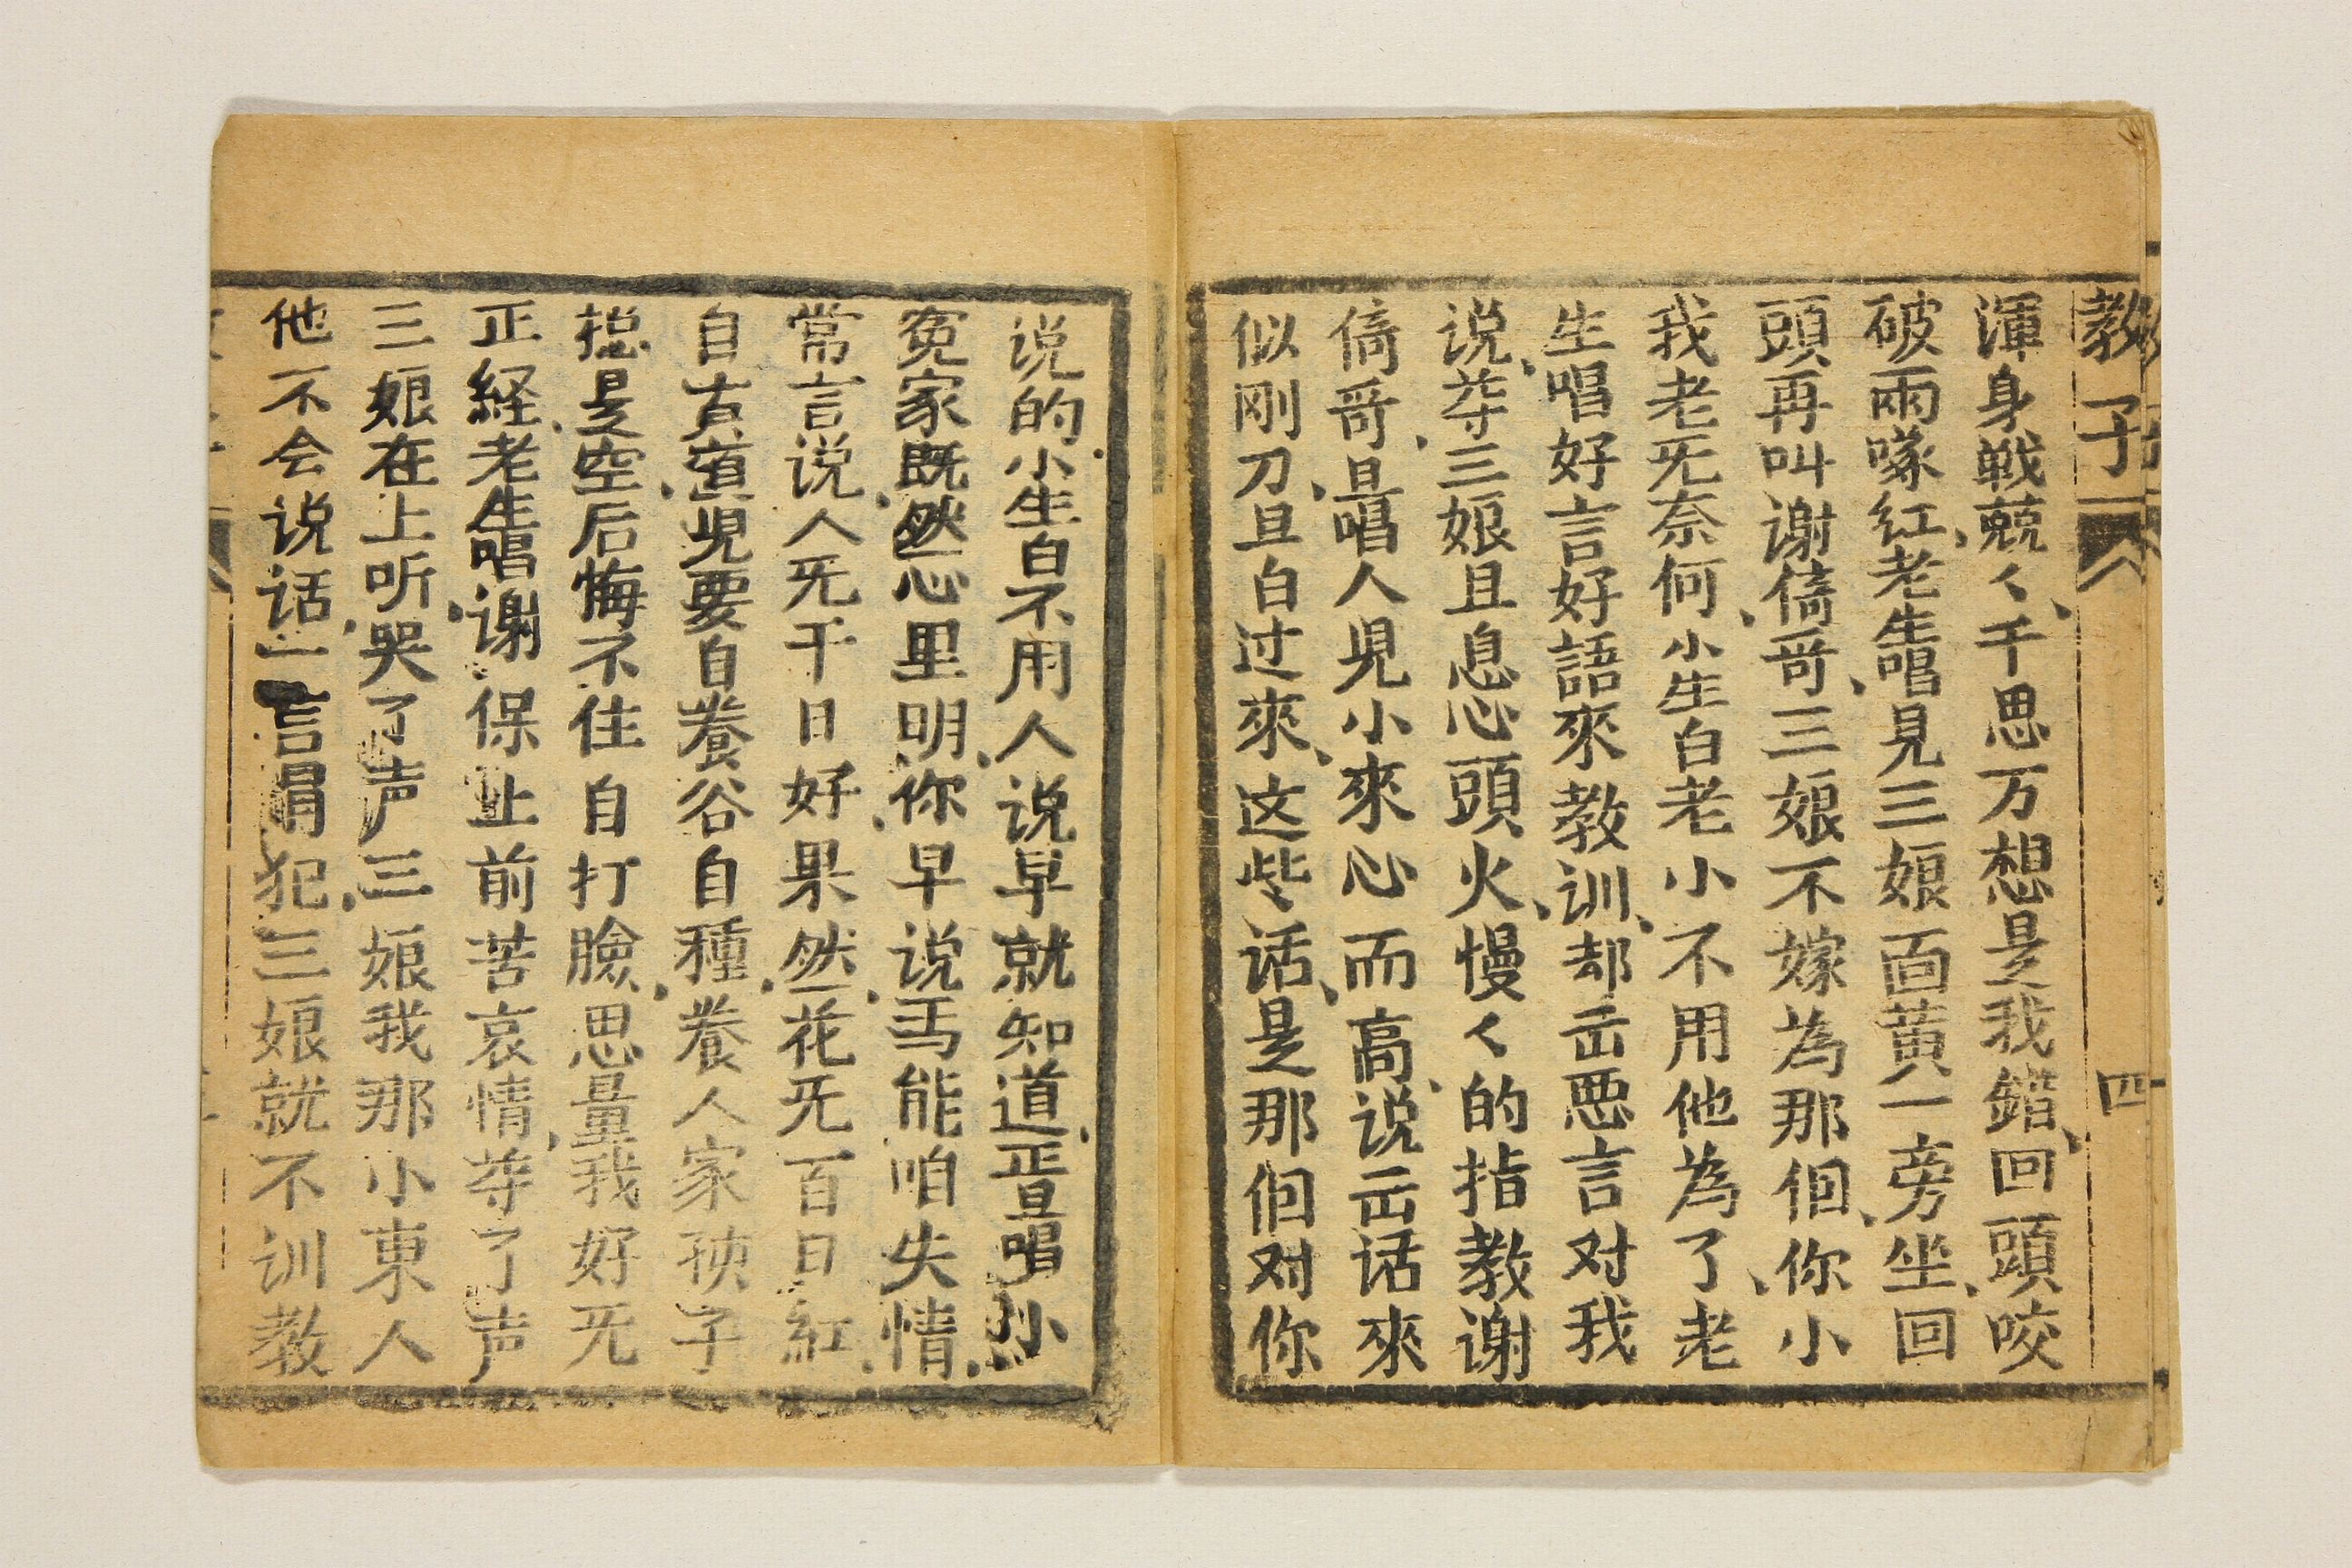 教子 四
渾身戦兢く千思万想是我錯回頭咬
破兩喙紅老生唱見三娘面黄一旁坐回
頭再叫谢倚哥三娘不嫁為那個你小
我老旡奈何小生白老小不用他為了老
生唱好言好語來教训却出悪言对我
说薛三娘且息心頭火慢く的指教谢
倚哥旦唱人児小來心而高说出话來
似刚刀旦白过來这些话是那個对你
说的小生白不用人说早就知道正旦唱小
寃家既然心里明你早说焉能咱失情
常言说人旡千日好果然花旡百日紅
自古道児要自養谷自種養人家孩子
揔是空后悔不住自打臉思量我好旡
正経老生唱谢保止前苦哀情薛了声
三娘在上听哭了声三娘我那小東人
他不会说话一言冒犯三娘就不训教